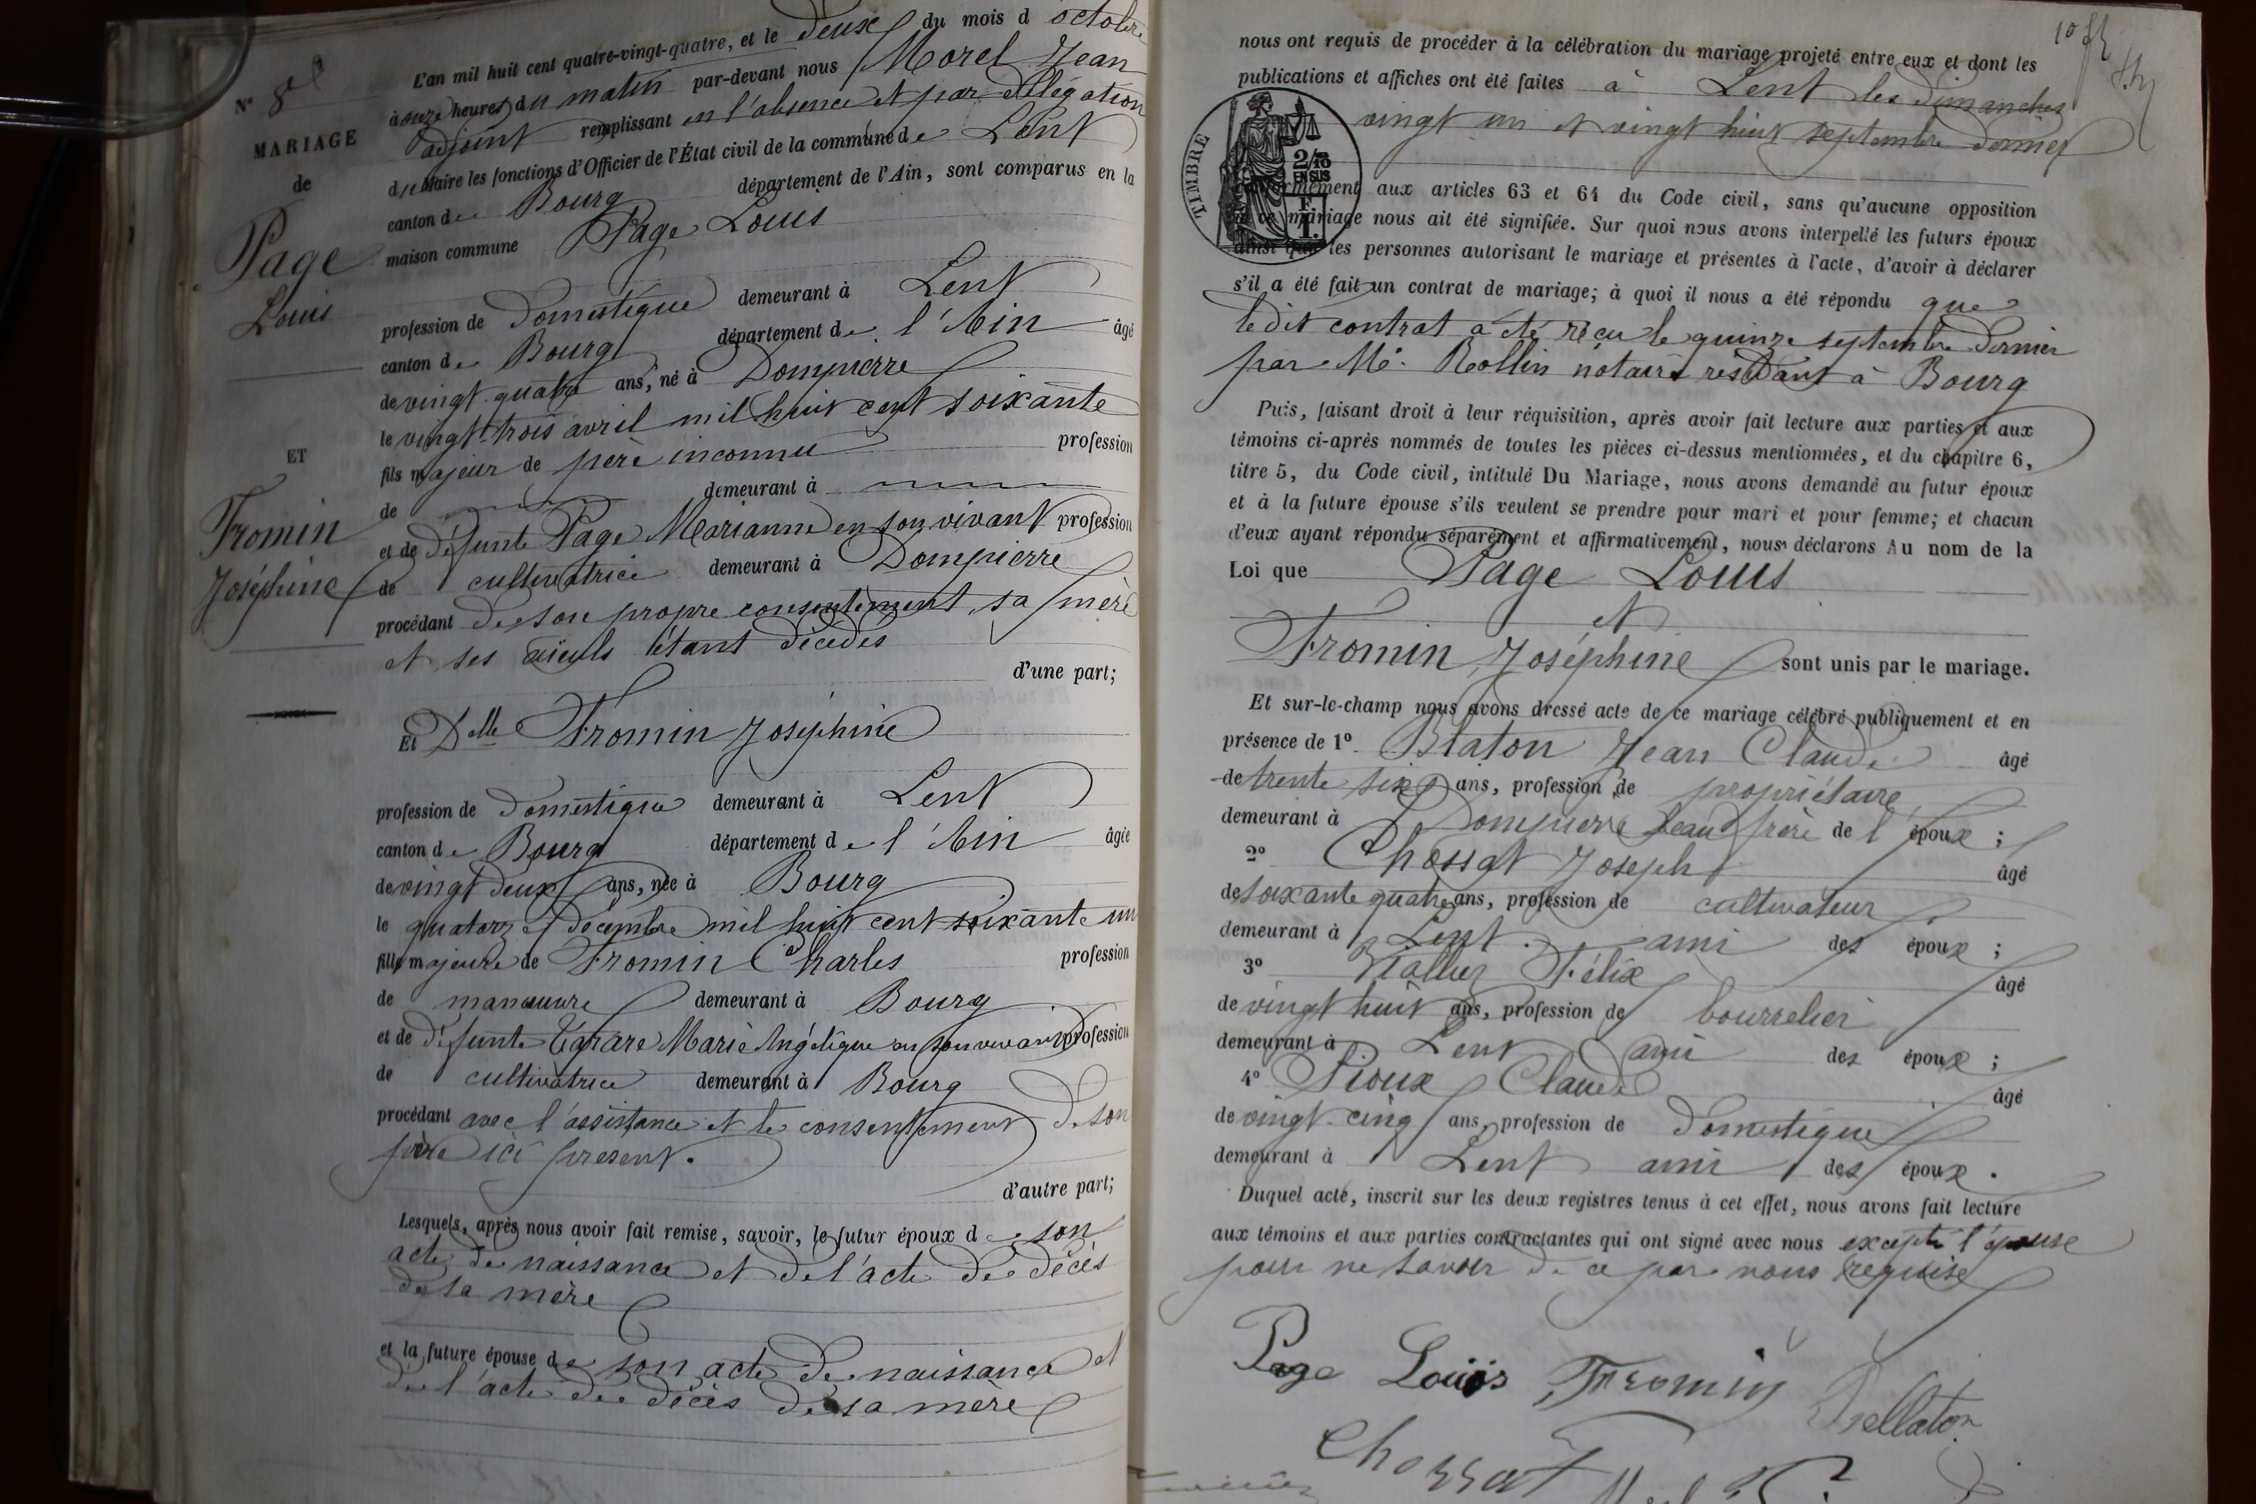 N° 8
MARIAGE
de
Page
Louis
ET
Fromin
Joséphine
L'an mil huit cent quatre-vingt-quatre, et le deux du mois d octobre
à onze heures du matin par-devant nous Morel Jean
adjoint remplissant en l'absence et par délégation
du Maire les fonctions d'Officier de l'État civil de la commune de Lent
canton de Bourg département de l'Ain, sont comparus en la
maison commune Page Louis
profession de Domestique demeurant à Lent
canton de Bourg département de l'Ain âgé
de vingt quatre ans, né à Dompierre
le vingt-trois avril mil huit cent soixante
fils majeur de père inconnu profession
de demeurant à
et de défunte Page Marianne en son vivant profession
de cultivatrice demeurant à Dompierre
procédant de son propre consentement, sa mère
et ses aïeuls étant décédés
d'une part;
Et Delle Fromin Joséphine
profession de Domestique demeurant à Lent
canton de Bourg département de l'Ain âgée
de vingt deux ans, née à Bourg
le quatorze décembre mil huit cent soixante un
fille majeure de Fromin Charles profession
de manœuvre demeurant à Bourg
et de défunte Marie Angélique en son vivant profession
de cultivatrice demeurant à Bourg
procédant avec l'assistance et le consentement de son
père ici présent.
d'autre part;
Lesquels, après nous avoir fait remise, savoir, le futur époux de son
acte de naissance et de l'acte de décès
de sa mère
et la future épouse de son acte de naissance et
de l'acte de décès de sa mère
nous ont requis de procéder à la célébration du mariage projeté entre eux et dont les
publications et affiches ont été faites à Lent les dimanches
vingt un et vingt huit septembre dernier
TIMBRE
2/10
EN SUS
F.
1.
aux articles 63 et 64 du Code civil, sans qu'aucune opposition
à ce mariage nous ait été signifiée. Sur quoi nous avons interpellé les futurs époux
ainsi que les personnes autorisant le mariage et présentes à l'acte, d'avoir à déclarer
s'il a été fait un contrat de mariage; à quoi il nous a été répondu que
le dit contrat a été reçu le quinze septembre dernier
par Me. Rollin notaire résidant à Bourg
Puis, faisant droit à leur réquisition, après avoir fait lecture aux parties et aux
témoins ci-après nommés de toutes les pièces ci-dessus mentionnées, et du chapitre 6,
titre 5, du Code civil, intitulé Du Mariage, nous avons demandé au futur époux
et à la future épouse s'ils veulent se prendre pour mari et pour femme; et chacun
d'eux ayant répondu séparément et affirmativement, nous déclarons Au nom de la
Loi que Page Louis
et
Fromin Joséphine sont unis par le mariage.
Et sur-le-champ nous avons dressé acte de ce mariage célébré publiquement et en
présence de 1° Blaton Jean Claude âgé
de trente six ans, profession de propriétaire
demeurant à Dompierre beau frère de l'époux;
2° Chossat Joseph âgé
de soixante quatre ans, profession de cultivateur
demeurant à Lent. ami des époux;
3° Félix âgé
de vingt huit ans, profession de bourrelier
demeurant à Lent ami des époux;
4° Pioux Claude âgé
de vingt-cinq ans, profession de domestique
demeurant à Lent ami des époux.
Duquel acte, inscrit sur les deux registres tenus à cet effet, nous avons fait lecture
aux témoins et aux parties contractantes qui ont signé avec nous excepté l'épouse
pour ne savoir de ce par nous requise
Page Louis Fromin
Chossat